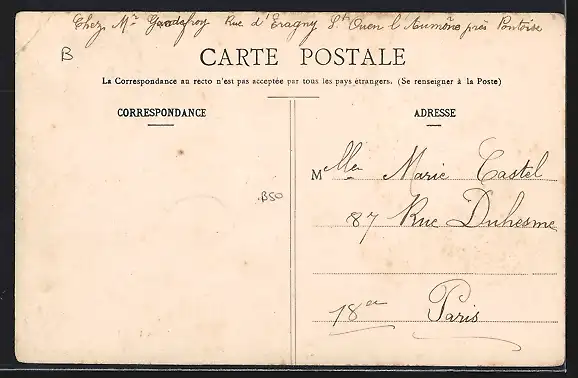 Chez Mr Goodefroy Rue d'Eragny St Ouen l'Aumône près Pontoise
B
CARTE POSTALE
La Correspondance au recto n'est pas acceptée par tous les pays étrangers. (Se renseigner à la Poste)
CORRESPONDANCE
B50
ADRESSE
M Mlle Marie Castel
87 Rue Duhesme
18e Paris